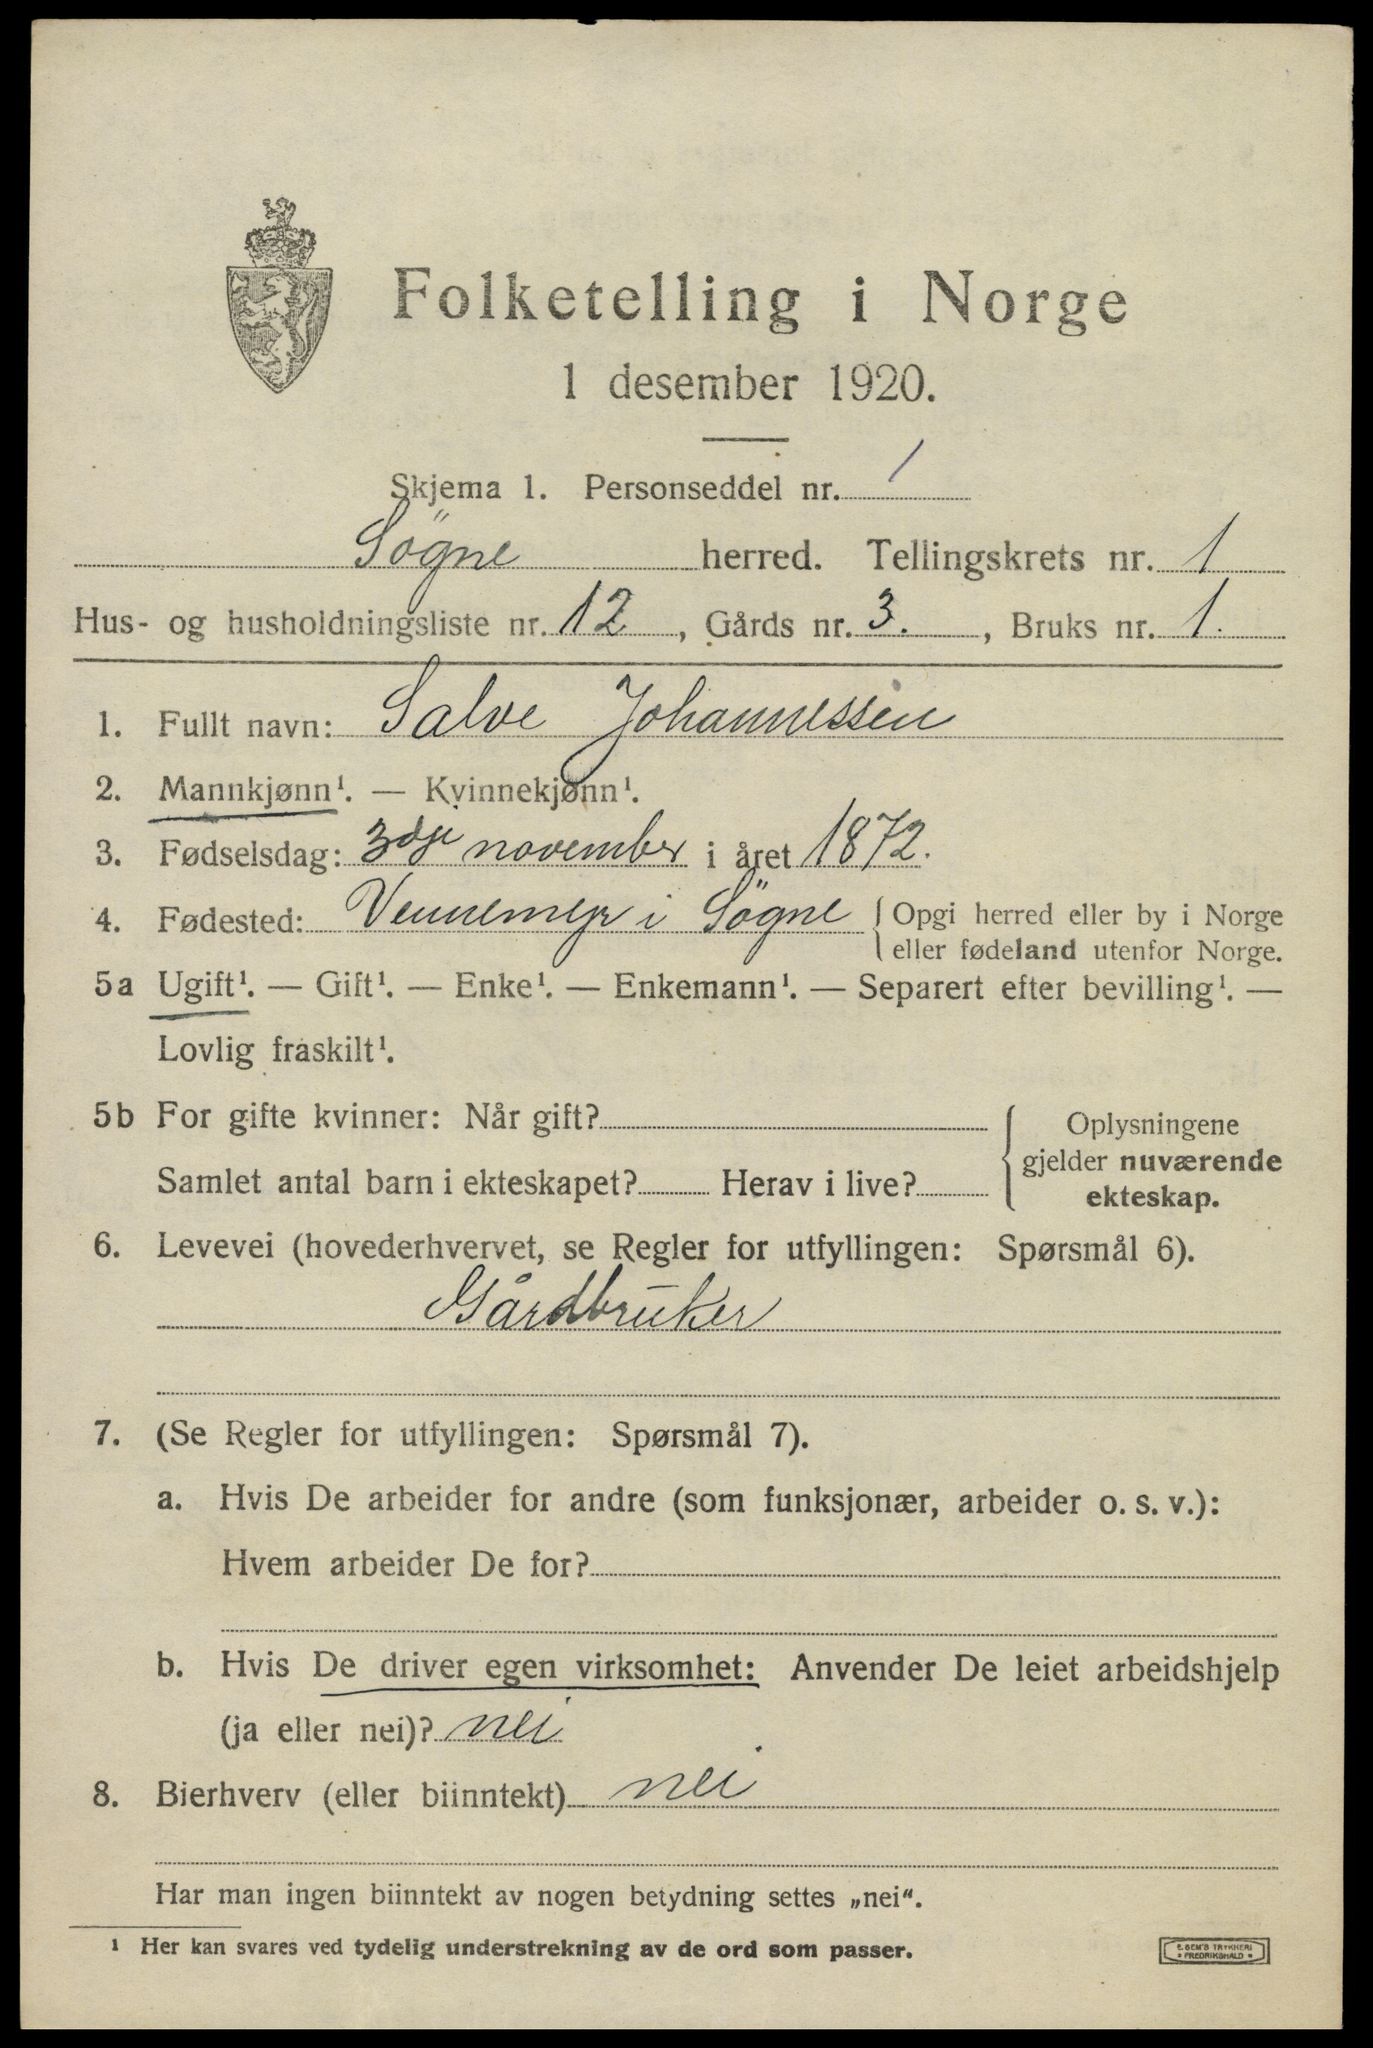 Folketelling i Norge
1 desember 1920.
Skjema 1. Personseddel nr. 1
Søgne herred. Tellingskrets nr. 1
Hus- og husholdningsliste nr. 12, Gårds nr. 3., Bruks nr. 1.
1. Fullt navn: Salve Johannessen
2. Mannkjønn¹. — Kvinnekjønn¹.
3. Fødselsdag: 3dje november i året 1872.
4. Fødested: Vennemyr i Søgne { Opgi herred eller by i Norge
eller fødeland utenfor Norge.
5a Ugift¹. — Gift¹. — Enke¹. — Enkemann¹. — Separert efter bevilling¹. —
Lovlig fraskilt¹.
5b For gifte kvinner: Når gift? { Oplysningene
gjelder nuværende
Samlet antal barn i ekteskapet? Herav i live? ekteskap.
6. Levevei (hovederhvervet, se Regler for utfyllingen: Spørsmål 6).
Gårdbruker
7. (Se Regler for utfyllingen: Spørsmål 7).
a. Hvis De arbeider for andre (som funksjonær, arbeider o. s. v.):
Hvem arbeider De for?
b. Hvis De driver egen virksomhet: Anvender De leiet arbeidshjelp
(ja eller nei)? nei
8. Bierhverv (eller biinntekt) nei
Har man ingen biinntekt av nogen betydning settes „nei“.
¹ Her kan svares ved tydelig understrekning av de ord som passer.
E. SEM'S TRYKKERI
* FREDRIKSHALD *